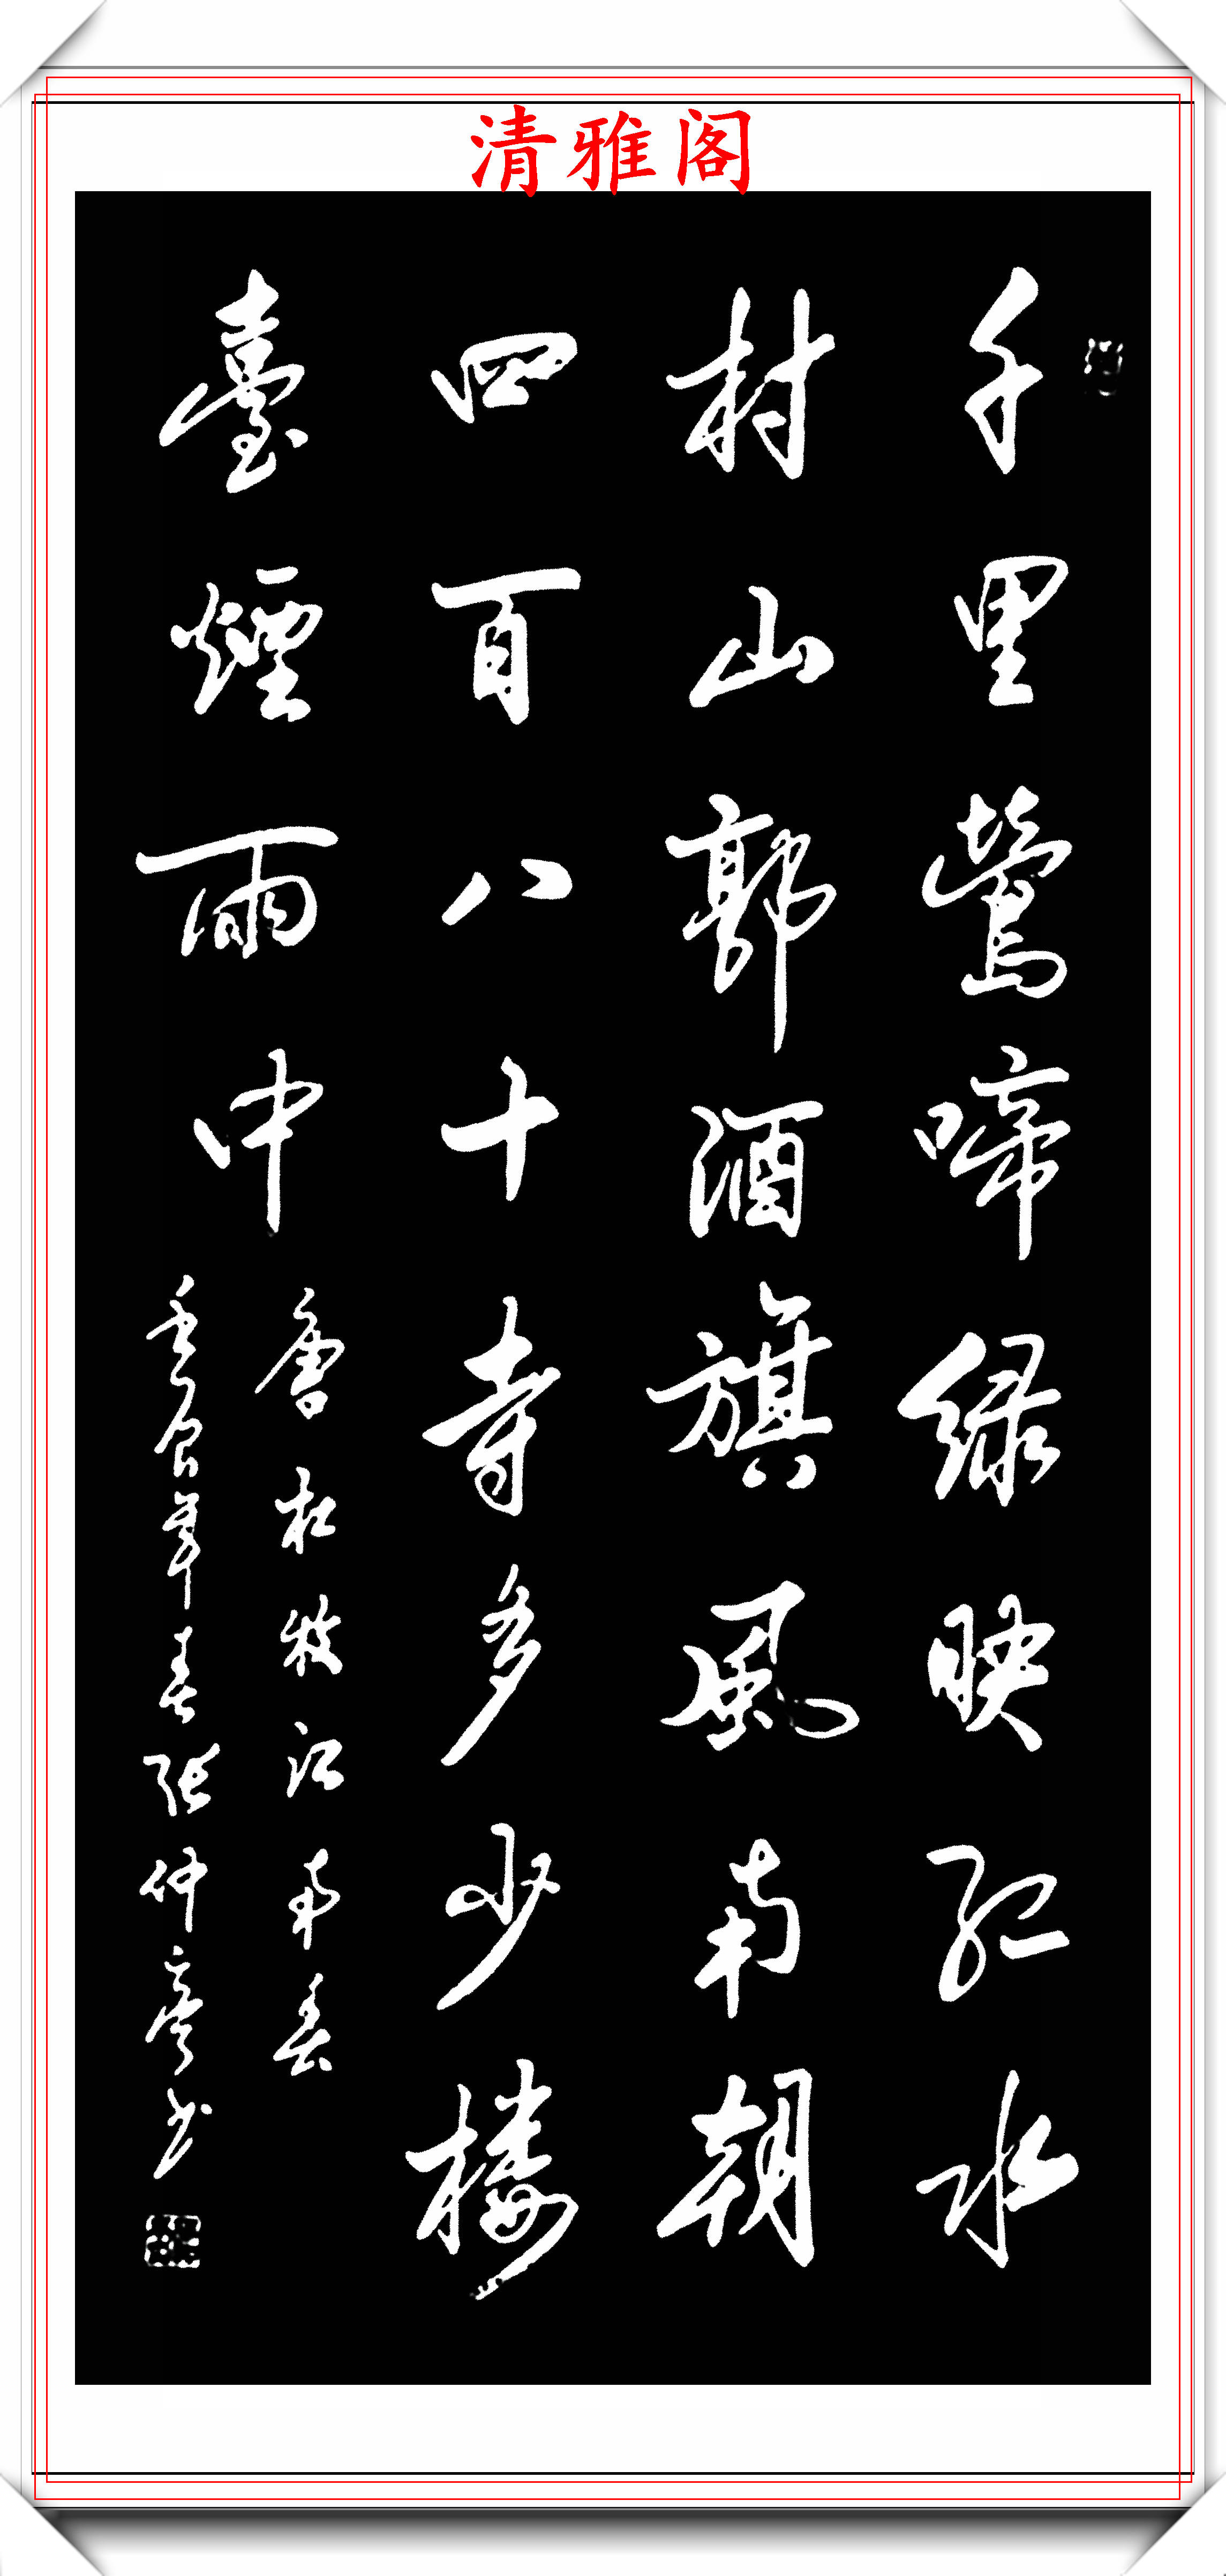 清雅阁
千里鶯啼绿映红水
村山郭酒旗風南朝
四百八十寺多少楼
臺煙雨中
唐杜牧江南春
年春张仲亭书